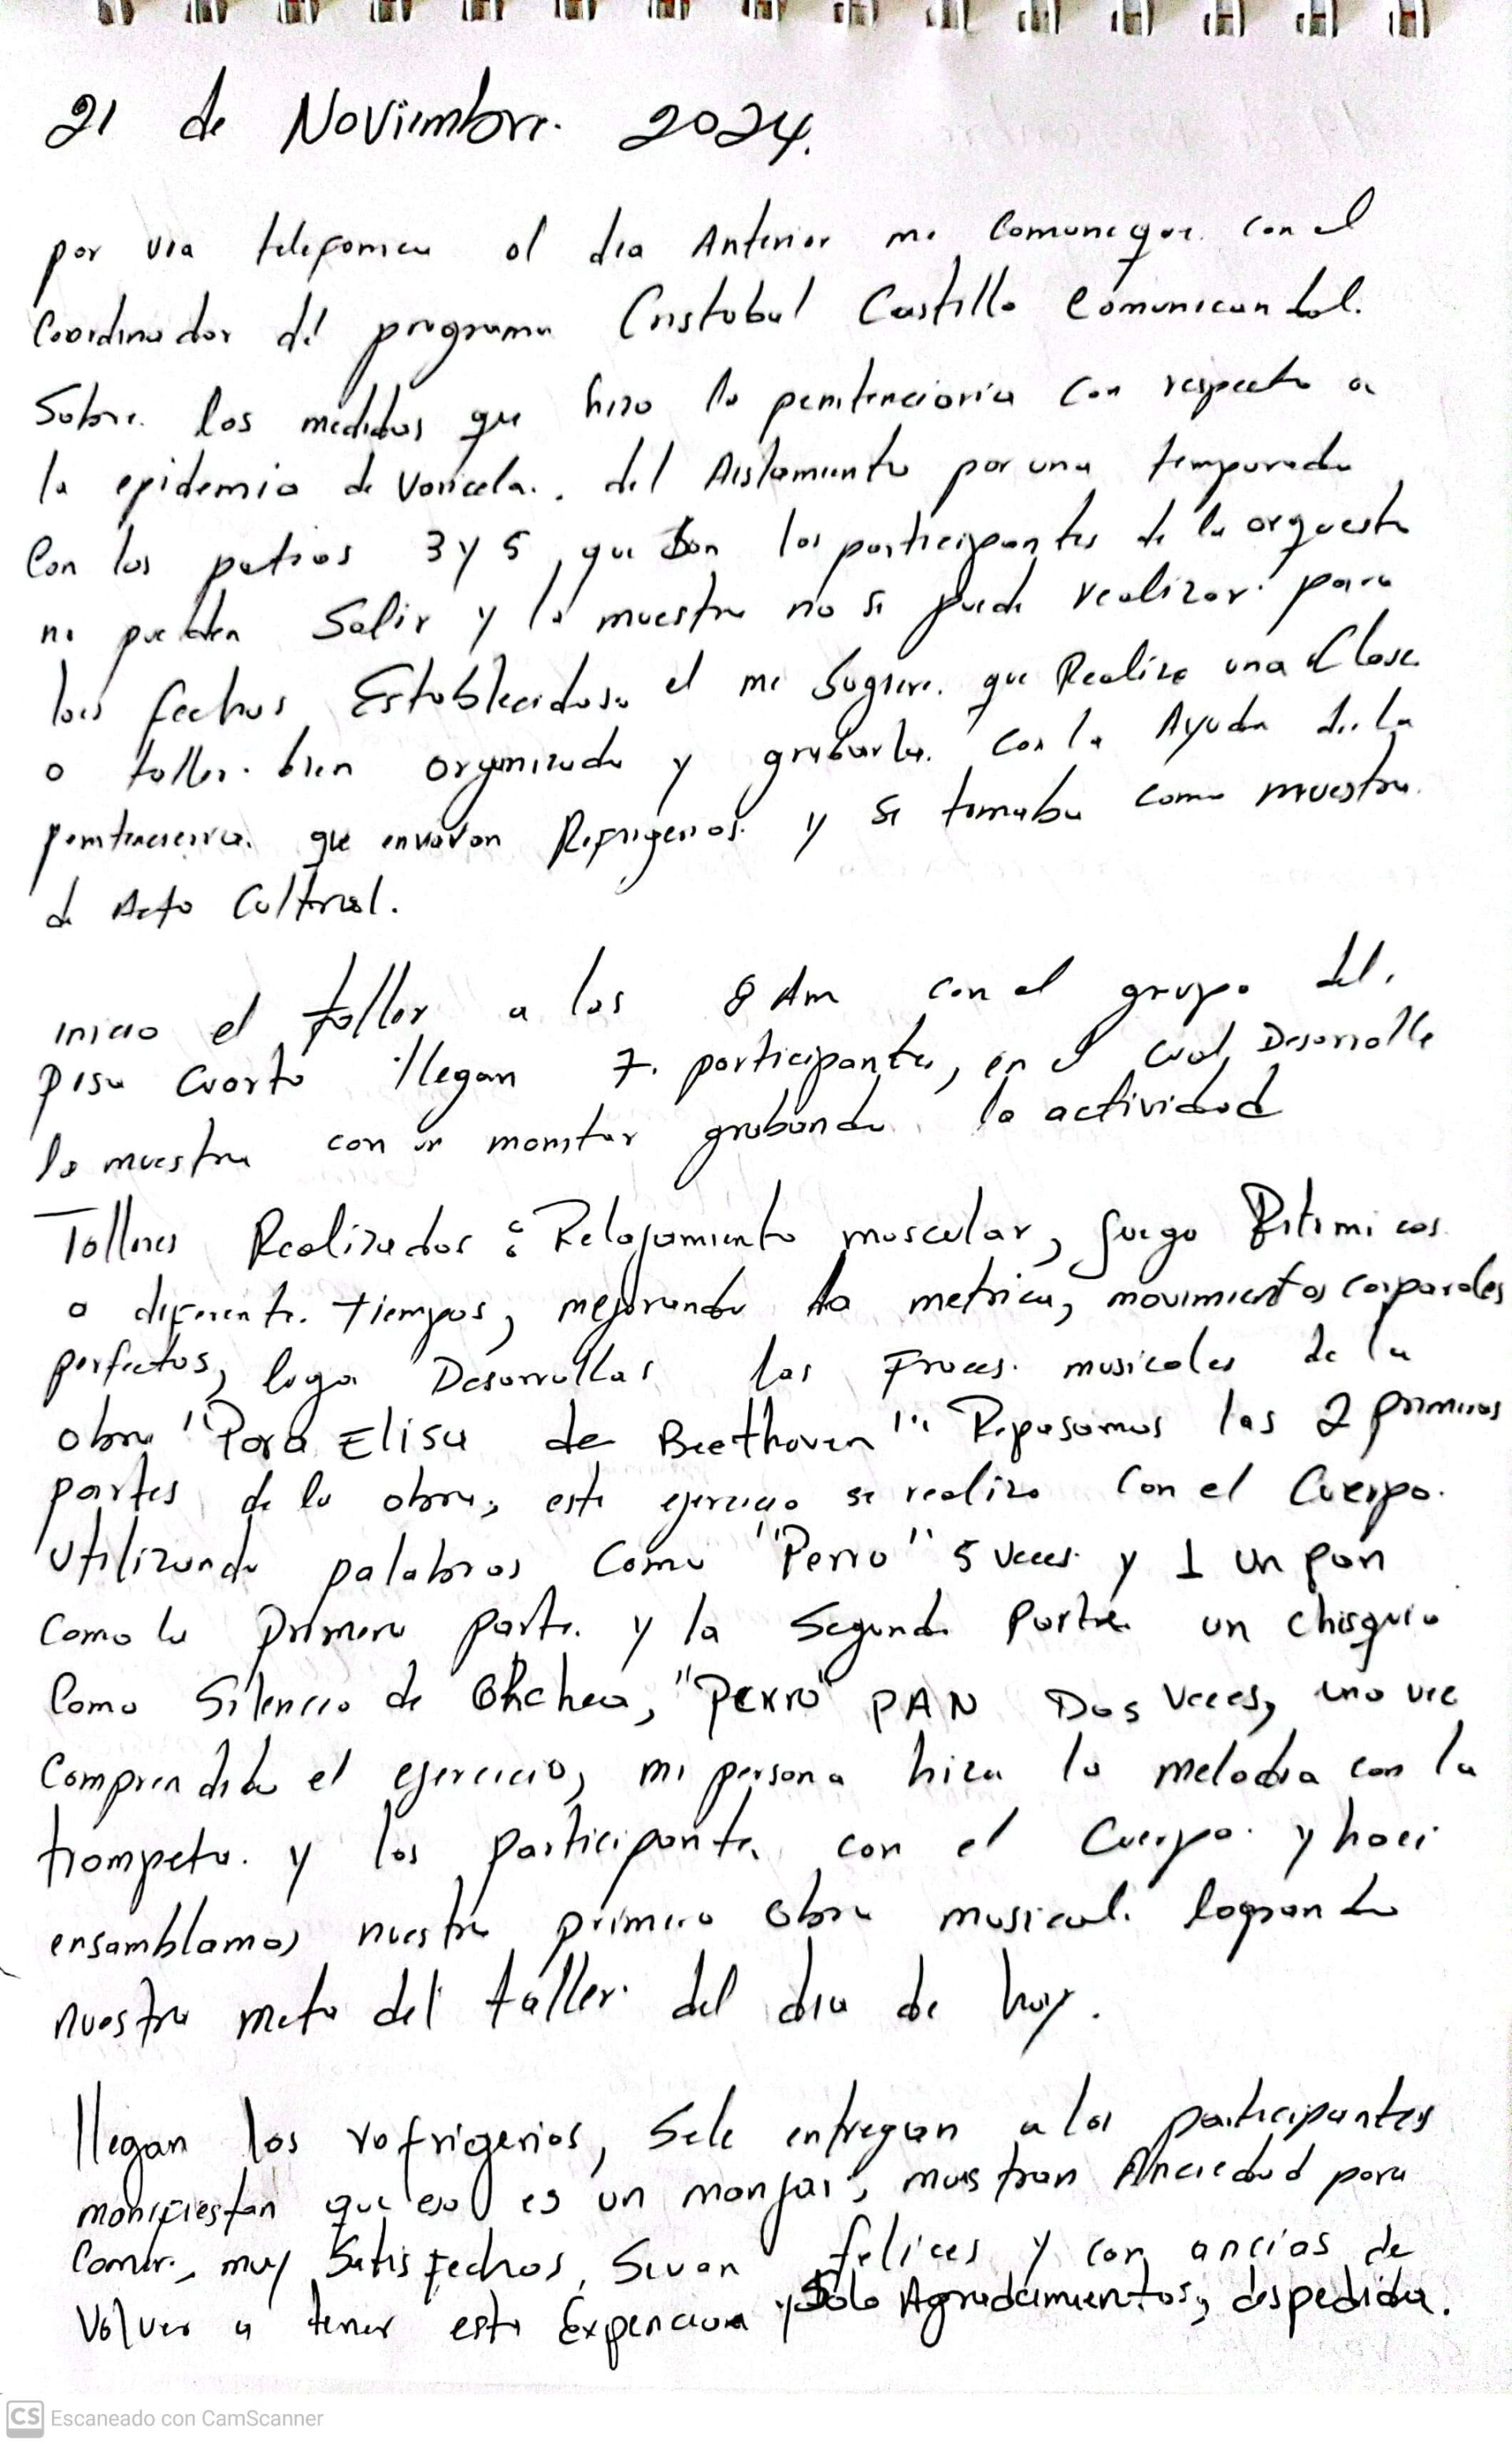 21 de Noviembre. 2024.
por via telefonica el dia Anterior me Comunique. con el
Coordinador del programa Cristobal Castillo Comunicandol.
Sobre. las medidas que hizo la penitenciaria con respecto a
la epidemia de Varicela.. del Aislamiento por una temporada
Con los patios 3 y 5, que son los participantes de la orquesta
no pueden Salir y la muestra no se puede realizar. para
las fechas Establecidas. el me Sugiere. que Realize una Clase
o taller. bien organizada y grabarla. con la Ayuda de la
penitenciaria. que enviaran Refrigerios. y se tomaba como muestra.
de Acto Cultural.
inicio el taller a las 8 Am con el grupo del.
piso Cuarto llegan 7. participantes, en el cual Desarrolle
la muestra con un monitor grabando. la actividad
Talleres Realizados: Relajamiento muscular, juego Ritimicos
a diferente. tiempos, mejorando la metrica, movimientos corporales
perfectos, luego Desarrollar las Fraces. musicales de la
obra "Para Elisa de Beethoven". Repasamos las 2 primeras
partes de la obra, este ejercicio se realizo con el Cuerpo.
Utilizando palabras Como "Perro" 5 veces. y 1 un pan
como la primera parte. y la Segunda Parte un chisquio
Como Silencio de Chchea, "Perro" PAN Dos Veces, una vez
Comprendido el ejercicio, mi persona hizo la melodia con la
trompeta. y los participante con el Cuerpo. y haci
ensamblamos nuestra primera obra musical. logrando
nuestra meta del taller. del dia de hoy.
llegan los refrigerios, Se le entregan a los participantes
manifiestan que eso es un manjar, muestran Anciedad para
Comer., muy Satisfechos, Se van felices y con ancias de
Volver a tener esta Experiencia y Solo Agradecimientos, despedida.
CS Escaneado con CamScanner